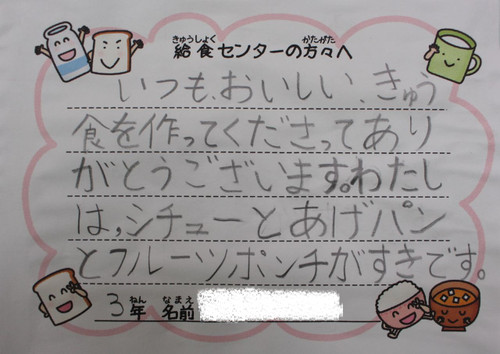 給食センターの方々へ
いつも、おいしい、きゅう
食を作ってくださってあり
がとうございます。わたし
は、シチューとあげパン
とフルーツポンチがすきです。
3年 名前